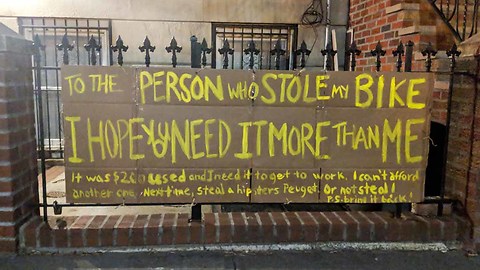 TO THE PERSON WHO STOLE MY BIKE
I HOPE YOU NEED IT MORE THAN ME
It was $200 used and I need it to get to work. I can't afford
another one. Next time, steal a hipsters Peugot. Or not steal!
P.S. bring it back!